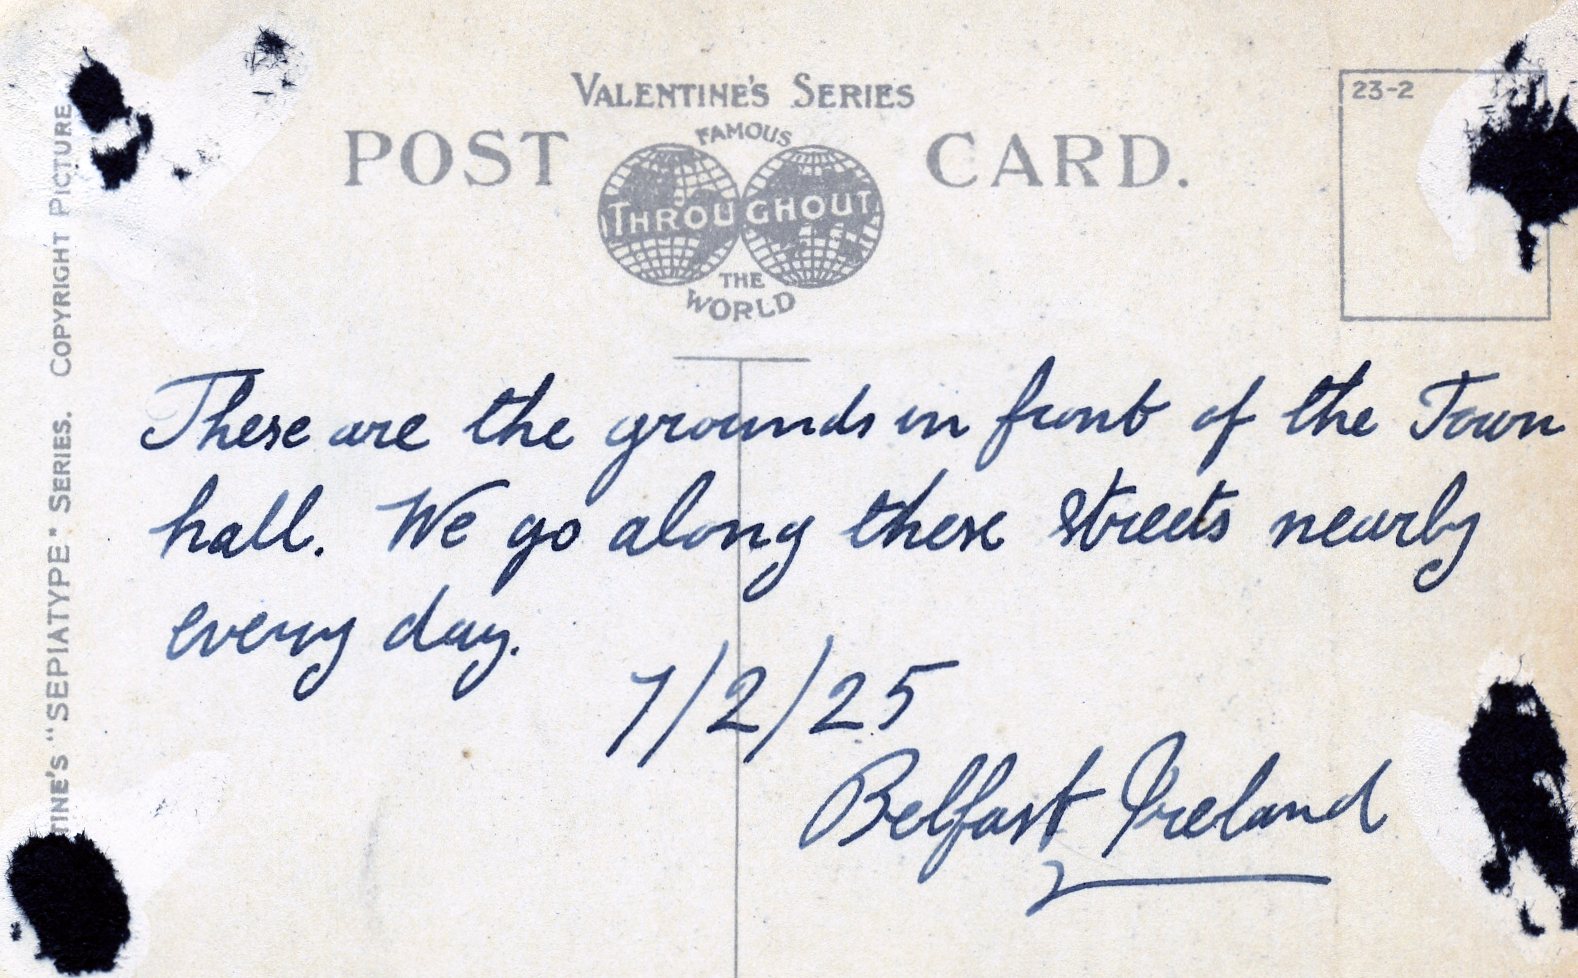 VALENTINE'S SERIES
POST CARD.
FAMOUS
THROUGHOUT
THE
WORLD
23-2
TINE'S "SEPIATYPE" SERIES. COPYRIGHT PICTURE
These are the grounds in front of the Town
hall. We go along these streets nearby
every day.
7/2/25
Belfast Ireland